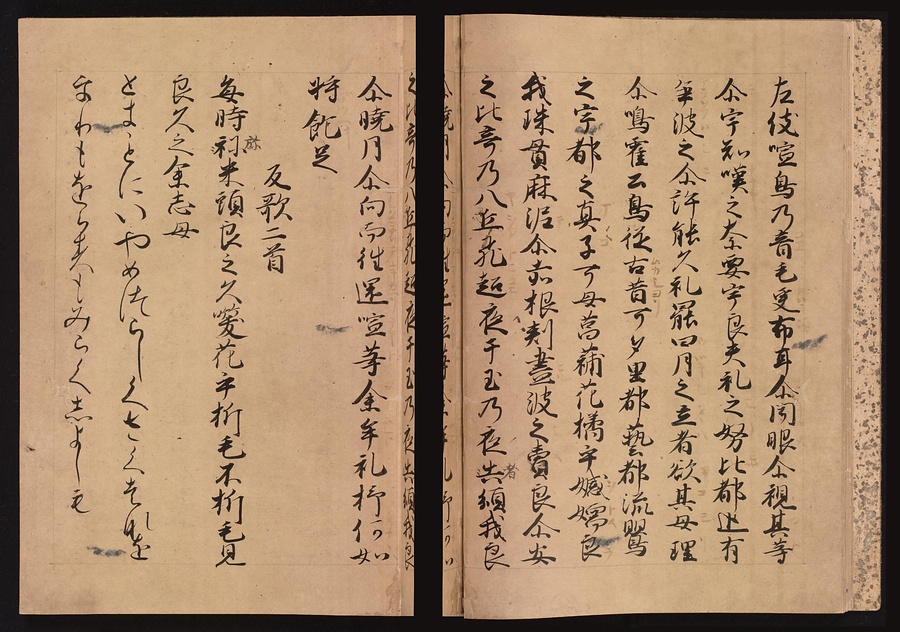 左伎喧鳥乃音毛更布耳尓聞眼尓視其等
尓宇知嘆之奈要宇良夫礼之努比都追有
争波之尓許能久礼罷四月之立者欲其母理
尓鳴霍公鳥従古昔可多里都藝都流鸎
之宇都之真子可母菖蒲花橘乎嬬良
我珠貫麻泥尓赤根刺晝波之賣良尓安
之比奇乃八丘飛超夜干玉乃夜者須我良
尓暁月尓向而徃還喧等余牟礼杼何如
将飽足
反歌二首
毎時弥米頭良之久咲花乎折毛不折毛見
良久之余志母
ときことにいやめつらしくさくはなを
をりもをらすもみらくしよしも